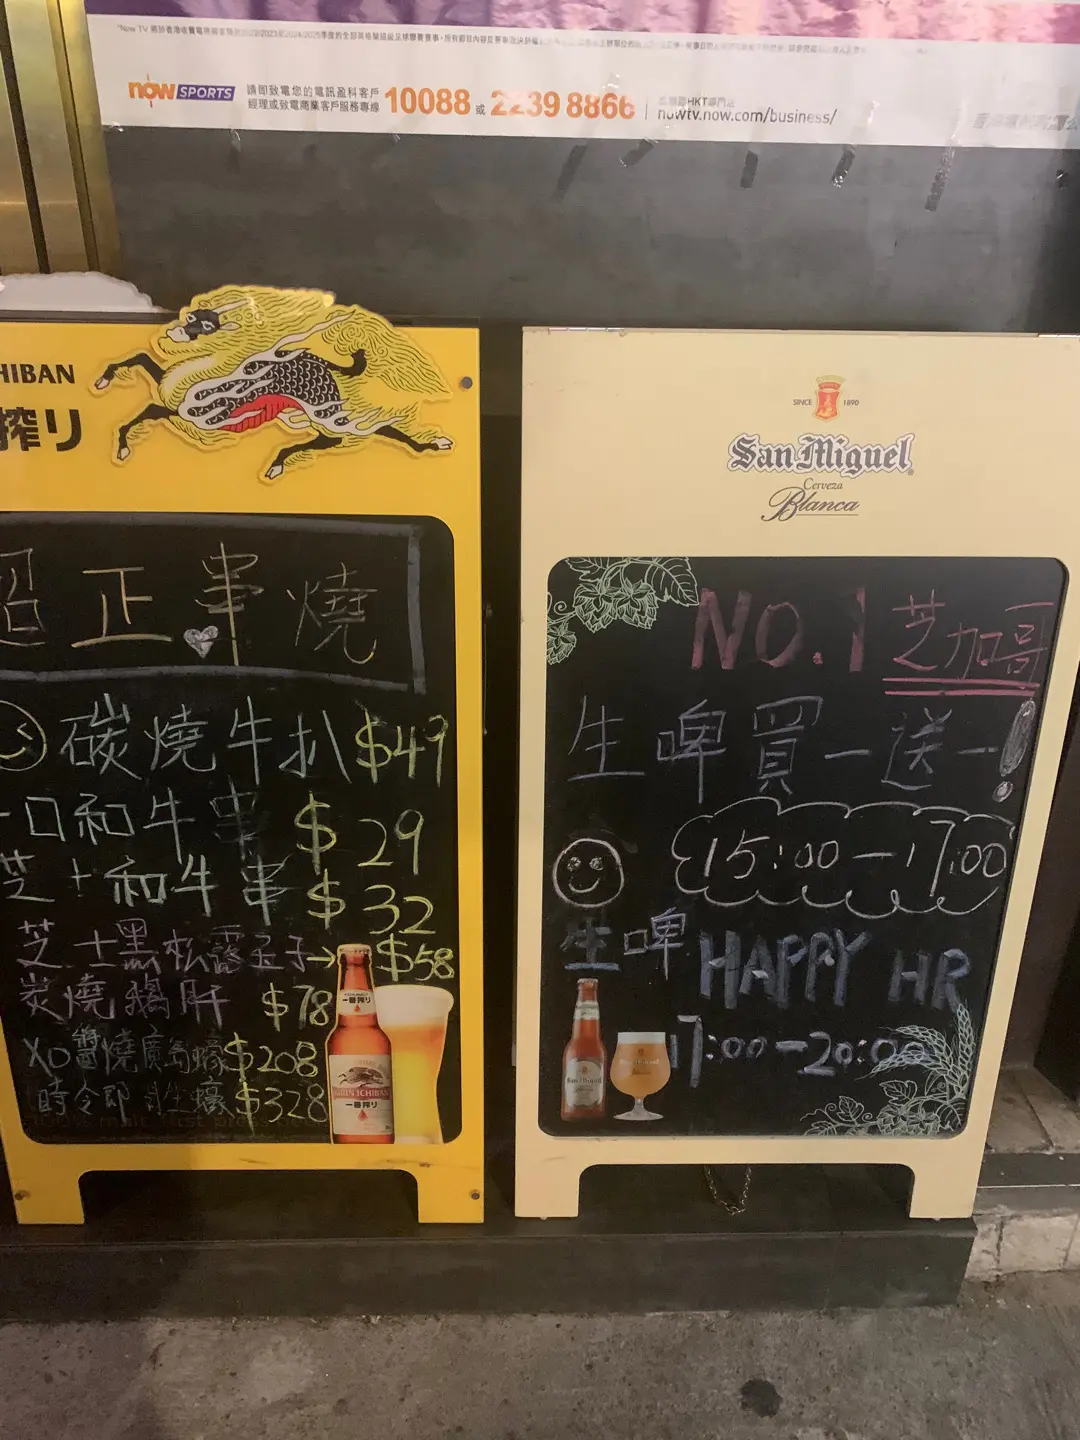 now SPORTS
請即致電您的電訊盈科客戶
經理或致電商業客戶服務專線
10088 或 2239 8866
nowtv.now.com/business/
HIBAN
搾り
超正串燒
碳燒牛扒 $49
一口和牛串 $29
芝士和牛串 $32
芝士黑松露玉子→ $58
炭燒鵝肝 $78
XO醬燒廣島蠔 $208
時令即開生蠔 $328
KIRIN ICHIBAN
一番搾り
SINCE 1890
San Miguel
Cerveza
Blanca
NO.1 芝加哥
生啤買一送一!
15:00-17:00
生啤 HAPPY HR
17:00-20:00
San Miguel